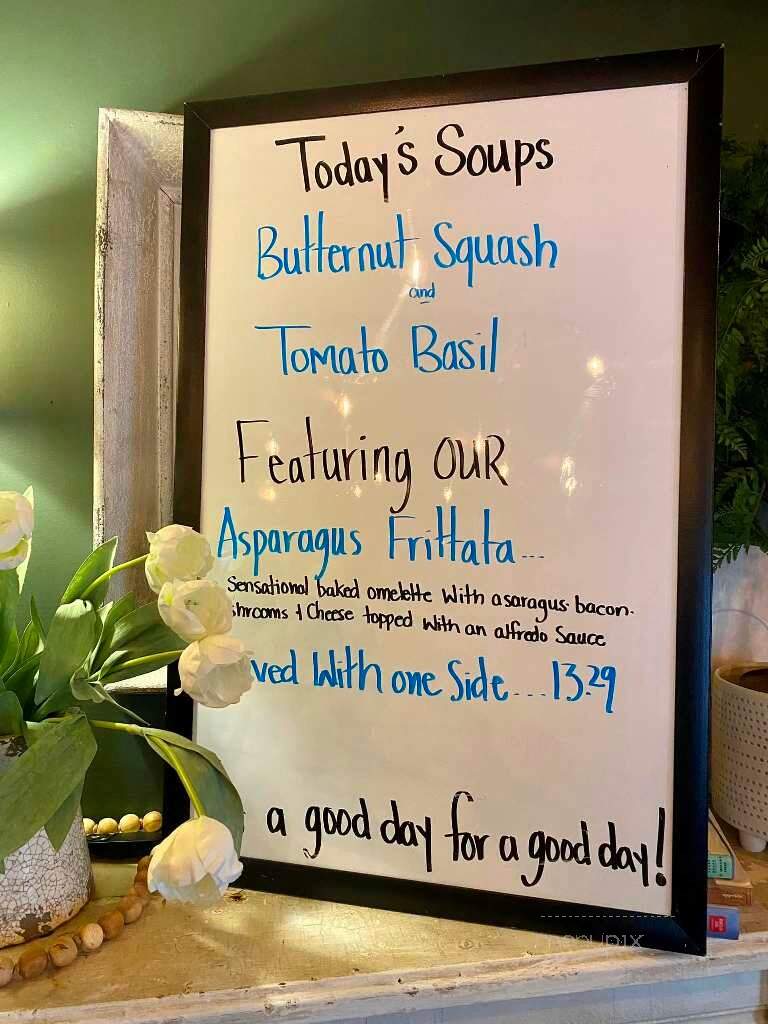 Today's Soups
Butternut Squash
and
Tomato Basil
Featuring OUR
Asparagus Frittata...
Sensational baked omelette with asaragus. bacon.
shrooms & Cheese topped with an alfredo Sauce
ved With one Side...13.29
a good day for a good day!
menupix